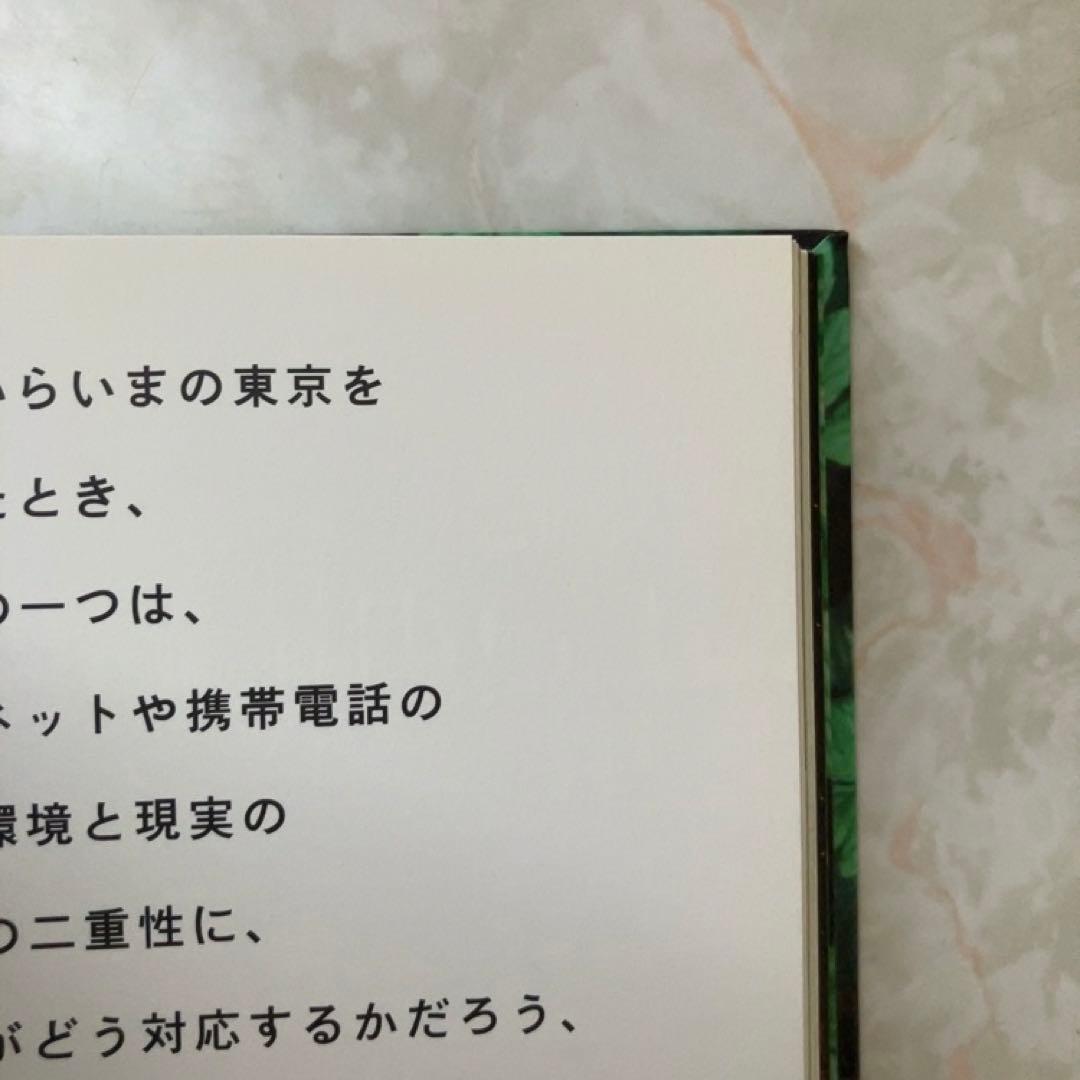 らいまの東京を
とき、
一つは、
ネットや携帯電話の
環境と現実の
の二重性に、
がどう対応するかだろう、